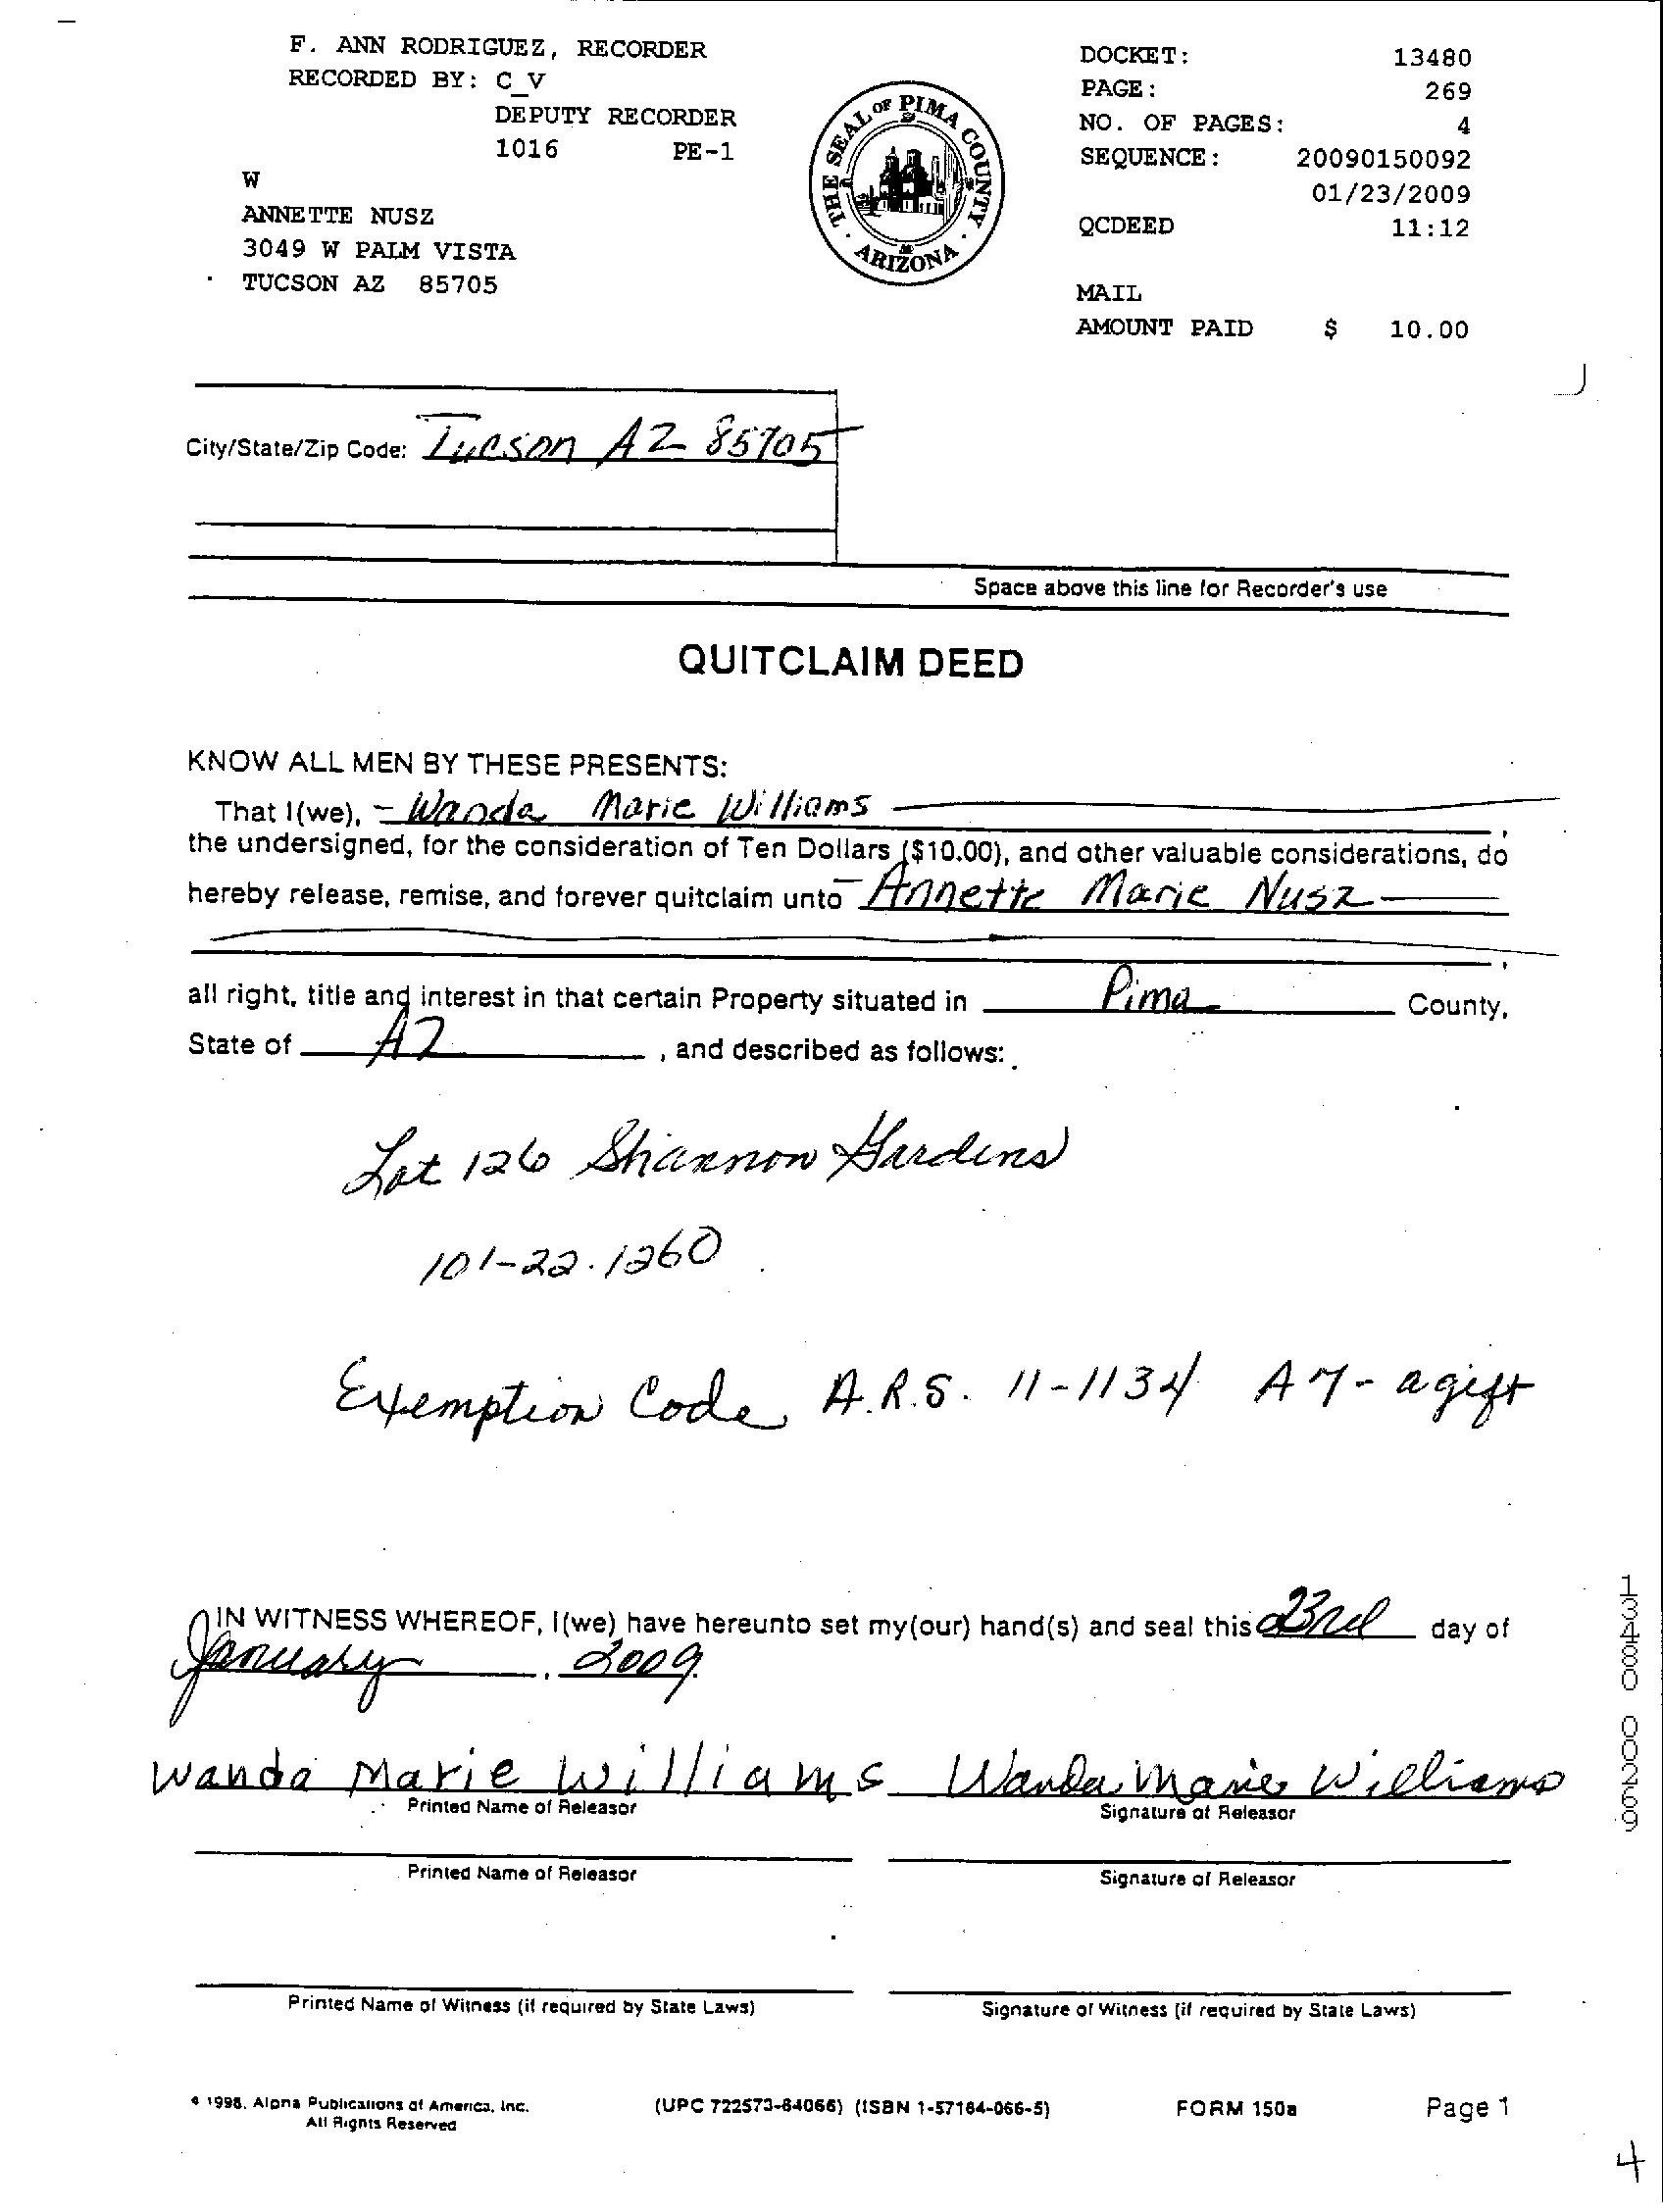 F. ANN RODRIGUEZ, RECORDER
RECORDED BY: C_V
DEPUTY RECORDER
1016 PE-1
W
ANNETTE NUSZ
3049 W PALM VISTA
TUCSON AZ 85705
THE SEAL OF PIMA COUNTY
ARIZONA
DOCKET: 13480
PAGE: 269
NO. OF PAGES: 4
SEQUENCE: 20090150092
01/23/2009
QCDEED 11:12
MAIL
AMOUNT PAID $ 10.00
City/State/Zip Code: Tucson AZ 85705
Space above this line for Recorder's use
QUITCLAIM DEED
KNOW ALL MEN BY THESE PRESENTS:
That I(we), - Wanda Marie Williams ,
the undersigned, for the consideration of Ten Dollars ($10.00), and other valuable considerations, do
hereby release, remise, and forever quitclaim unto - Annette Marie Nusz
all right, title and interest in that certain Property situated in Pima County,
State of AZ , and described as follows:
Lot 126 Shannon Gardens
101-22.1260
Exemption Code A.R.S. 11-1134 A7- a gift
IN WITNESS WHEREOF, I(we) have hereunto set my(our) hand(s) and seal this 23rd day of
January , 2009.
Wanda Marie Williams Wanda Marie Williams
Printed Name of Releasor Signature of Releasor
Printed Name of Releasor Signature of Releasor
Printed Name of Witness (if required by State Laws) Signature of Witness (if required by State Laws)
© 1998, Alpha Publications of America, Inc. (UPC 722573-64066) (ISBN 1-57164-066-5) FORM 150a Page 1
All Rights Reserved
13480 00269
4